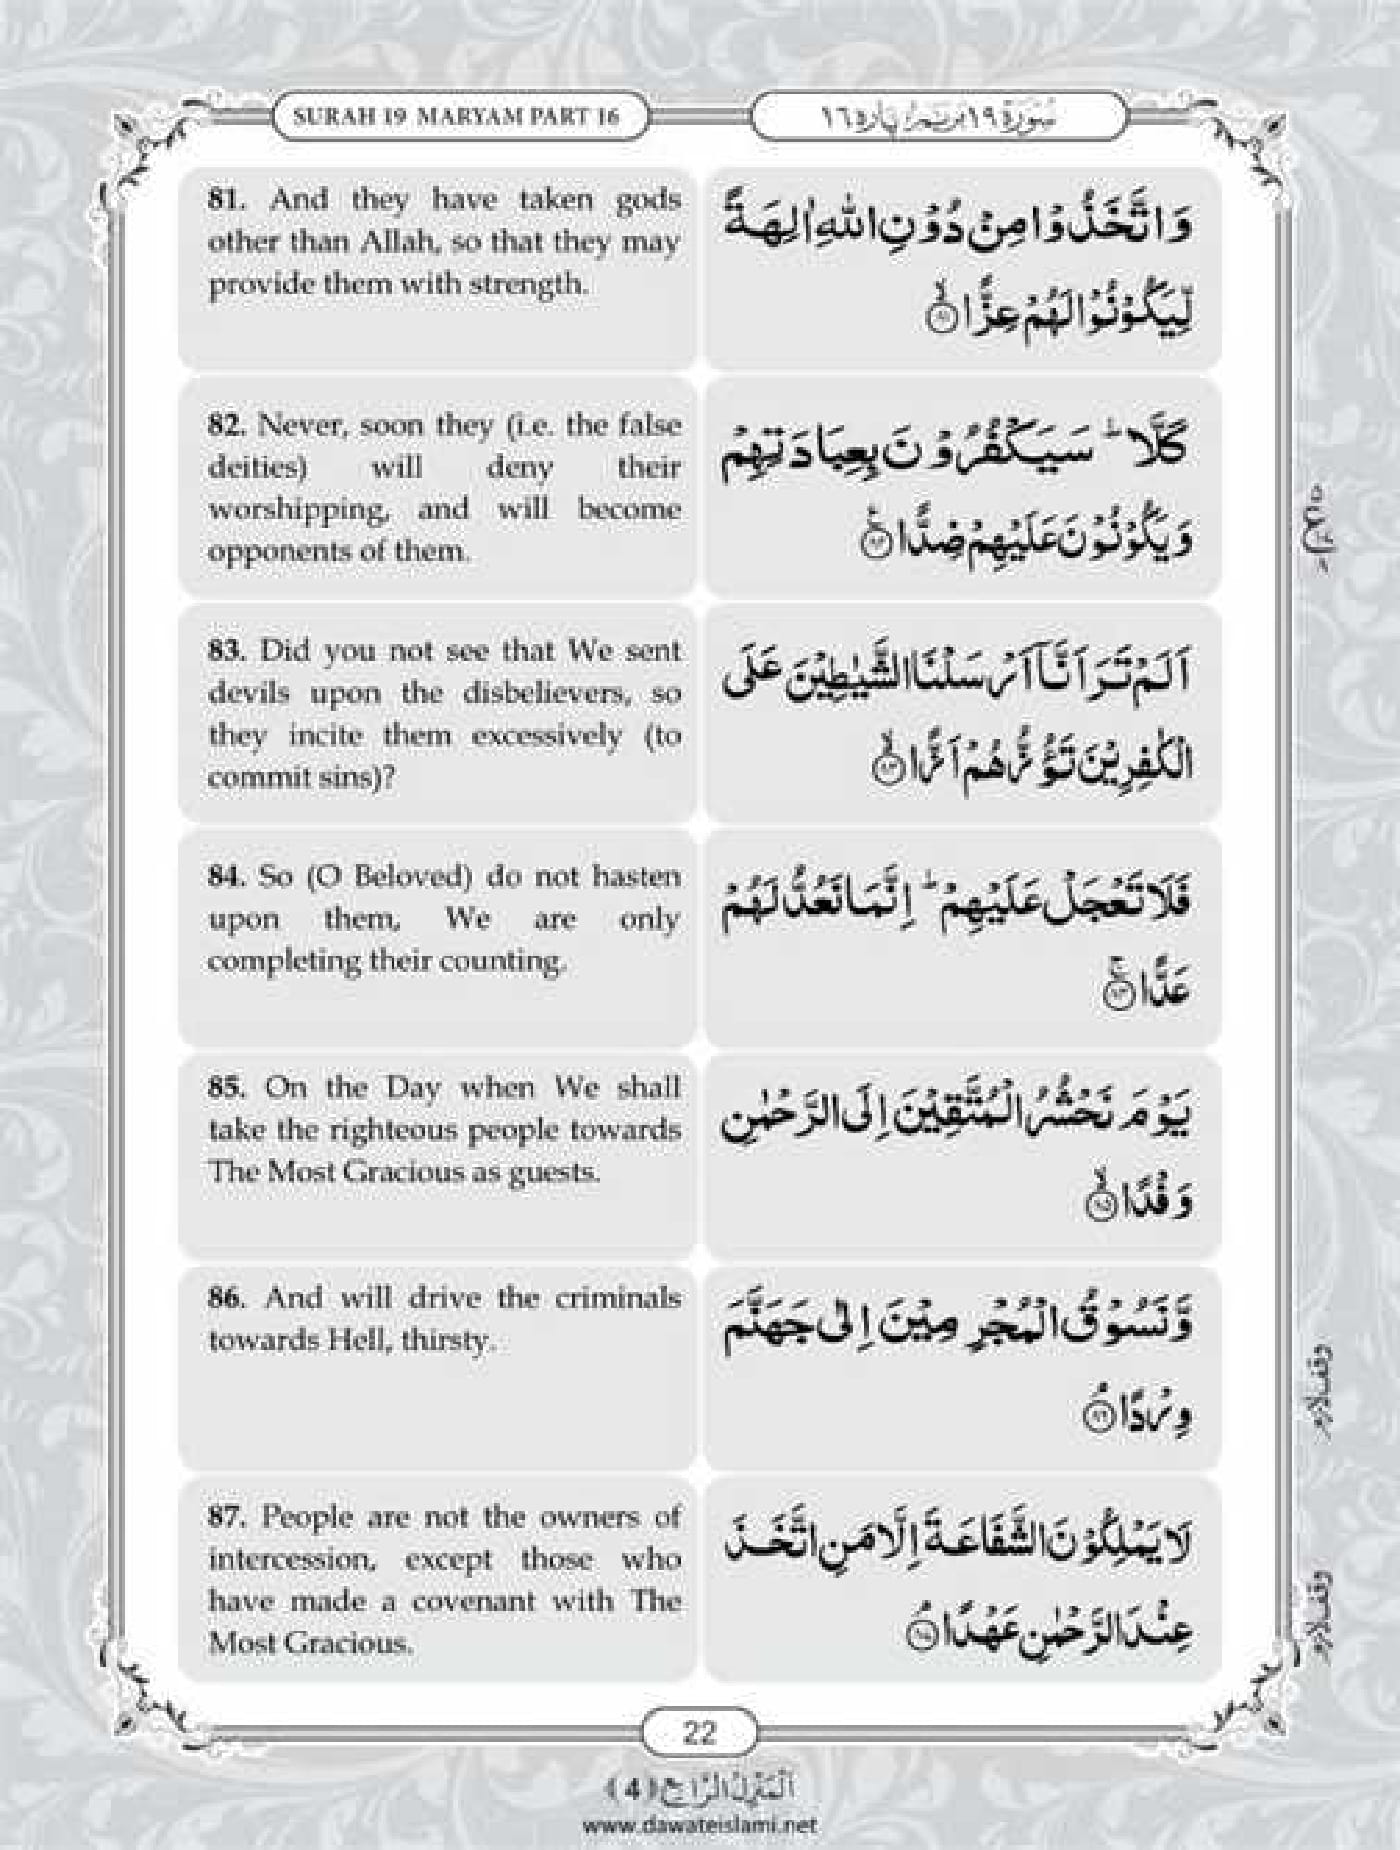 SURAH 19 MARYAM PART 16
سُوْرَة ١٩ مَرْيَم پاره ١٦
81. And they have taken gods
other than Allah, so that they may
provide them with strength.
وَاتَّخَذُوْا مِنْ دُوْنِ اللّٰهِ اٰلِهَةً
لِّيَكُوْنُوْا لَهُمْ عِزًّا ۙ﴿۸۱﴾
82. Never, soon they (i.e. the false
deities) will deny their
worshipping, and will become
opponents of them.
كَلَّا ؕ سَيَكْفُرُوْنَ بِعِبَادَتِهِمْ
وَيَكُوْنُوْنَ عَلَيْهِمْ ضِدًّا ﴿۸۲﴾
83. Did you not see that We sent
devils upon the disbelievers, so
they incite them excessively (to
commit sins)?
اَلَمْ تَرَ اَنَّاۤ اَرْسَلْنَا الشَّيٰطِيْنَ عَلَى
الْكٰفِرِيْنَ تَؤُزُّهُمْ اَزًّا ۙ﴿۸۳﴾
84. So (O Beloved) do not hasten
upon them, We are only
completing their counting.
فَلَا تَعْجَلْ عَلَيْهِمْ ؕ اِنَّمَا نَعُدُّ لَهُمْ
عَدًّا ﴿۸۴﴾
85. On the Day when We shall
take the righteous people towards
The Most Gracious as guests.
يَوْمَ نَحْشُرُ الْمُتَّقِيْنَ اِلَى الرَّحْمٰنِ
وَفْدًا ۙ﴿۸۵﴾
86. And will drive the criminals
towards Hell, thirsty.
وَّنَسُوْقُ الْمُجْرِمِيْنَ اِلٰى جَهَنَّمَ
وِرْدًا ۘ﴿۸۶﴾
87. People are not the owners of
intercession, except those who
have made a covenant with The
Most Gracious.
لَا يَمْلِكُوْنَ الشَّفَاعَةَ اِلَّا مَنِ اتَّخَذَ
عِنْدَ الرَّحْمٰنِ عَهْدًا ۘ﴿۸۷﴾
وقف لازم
وقف لازم
22
اَلْمَنْزِلُ الرَّابِع ﴿4﴾
www.dawateislami.net